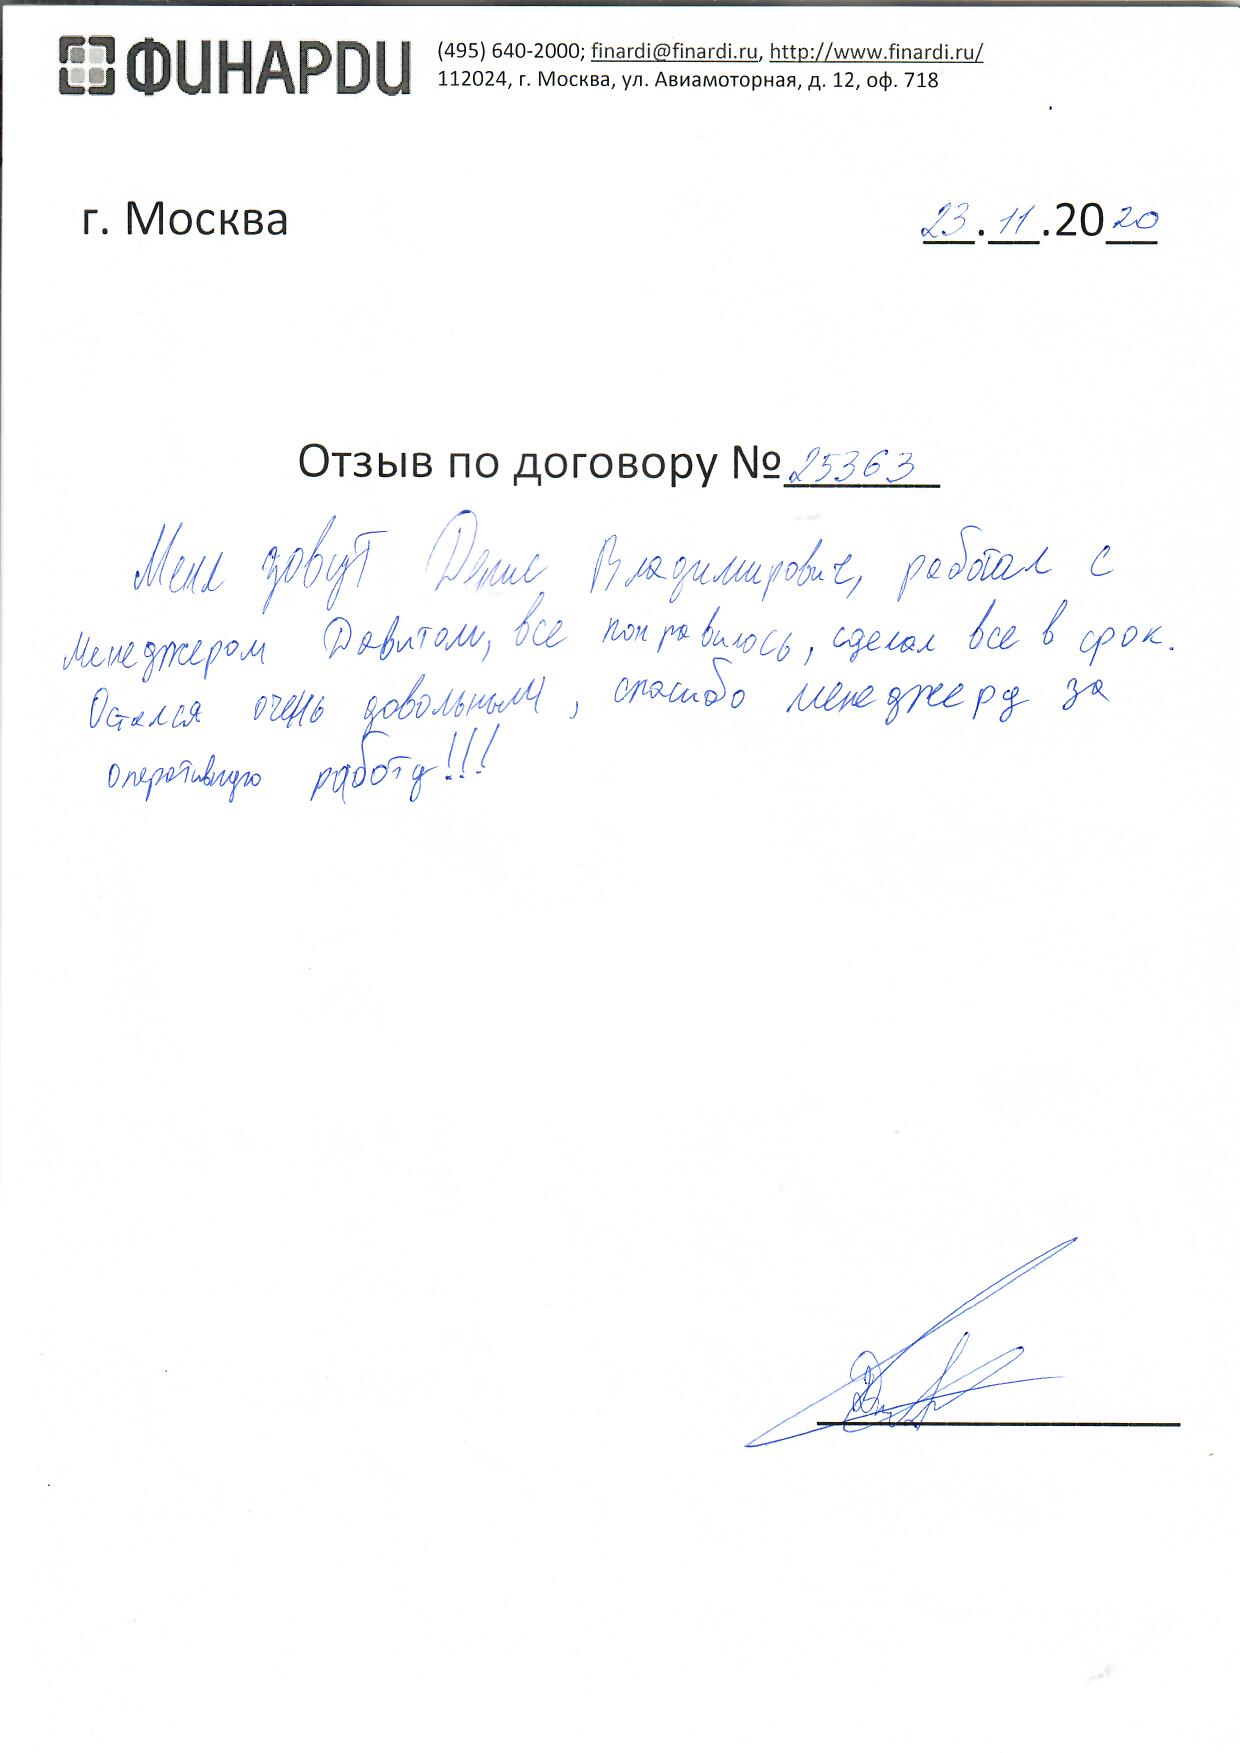 ФИНАРДИ
(495) 640-2000; finardi@finardi.ru, http://www.finardi.ru/
112024, г. Москва, ул. Авиамоторная, д. 12, оф. 718
г. Москва
23.11.2020
Отзыв по договору №25363
Меня зовут Денис Владимирович, работал с
менеджером Давитом, все понравилось, сделал все в срок.
Остался очень довольным, спасибо менеджеру за
оперативную работу!!!